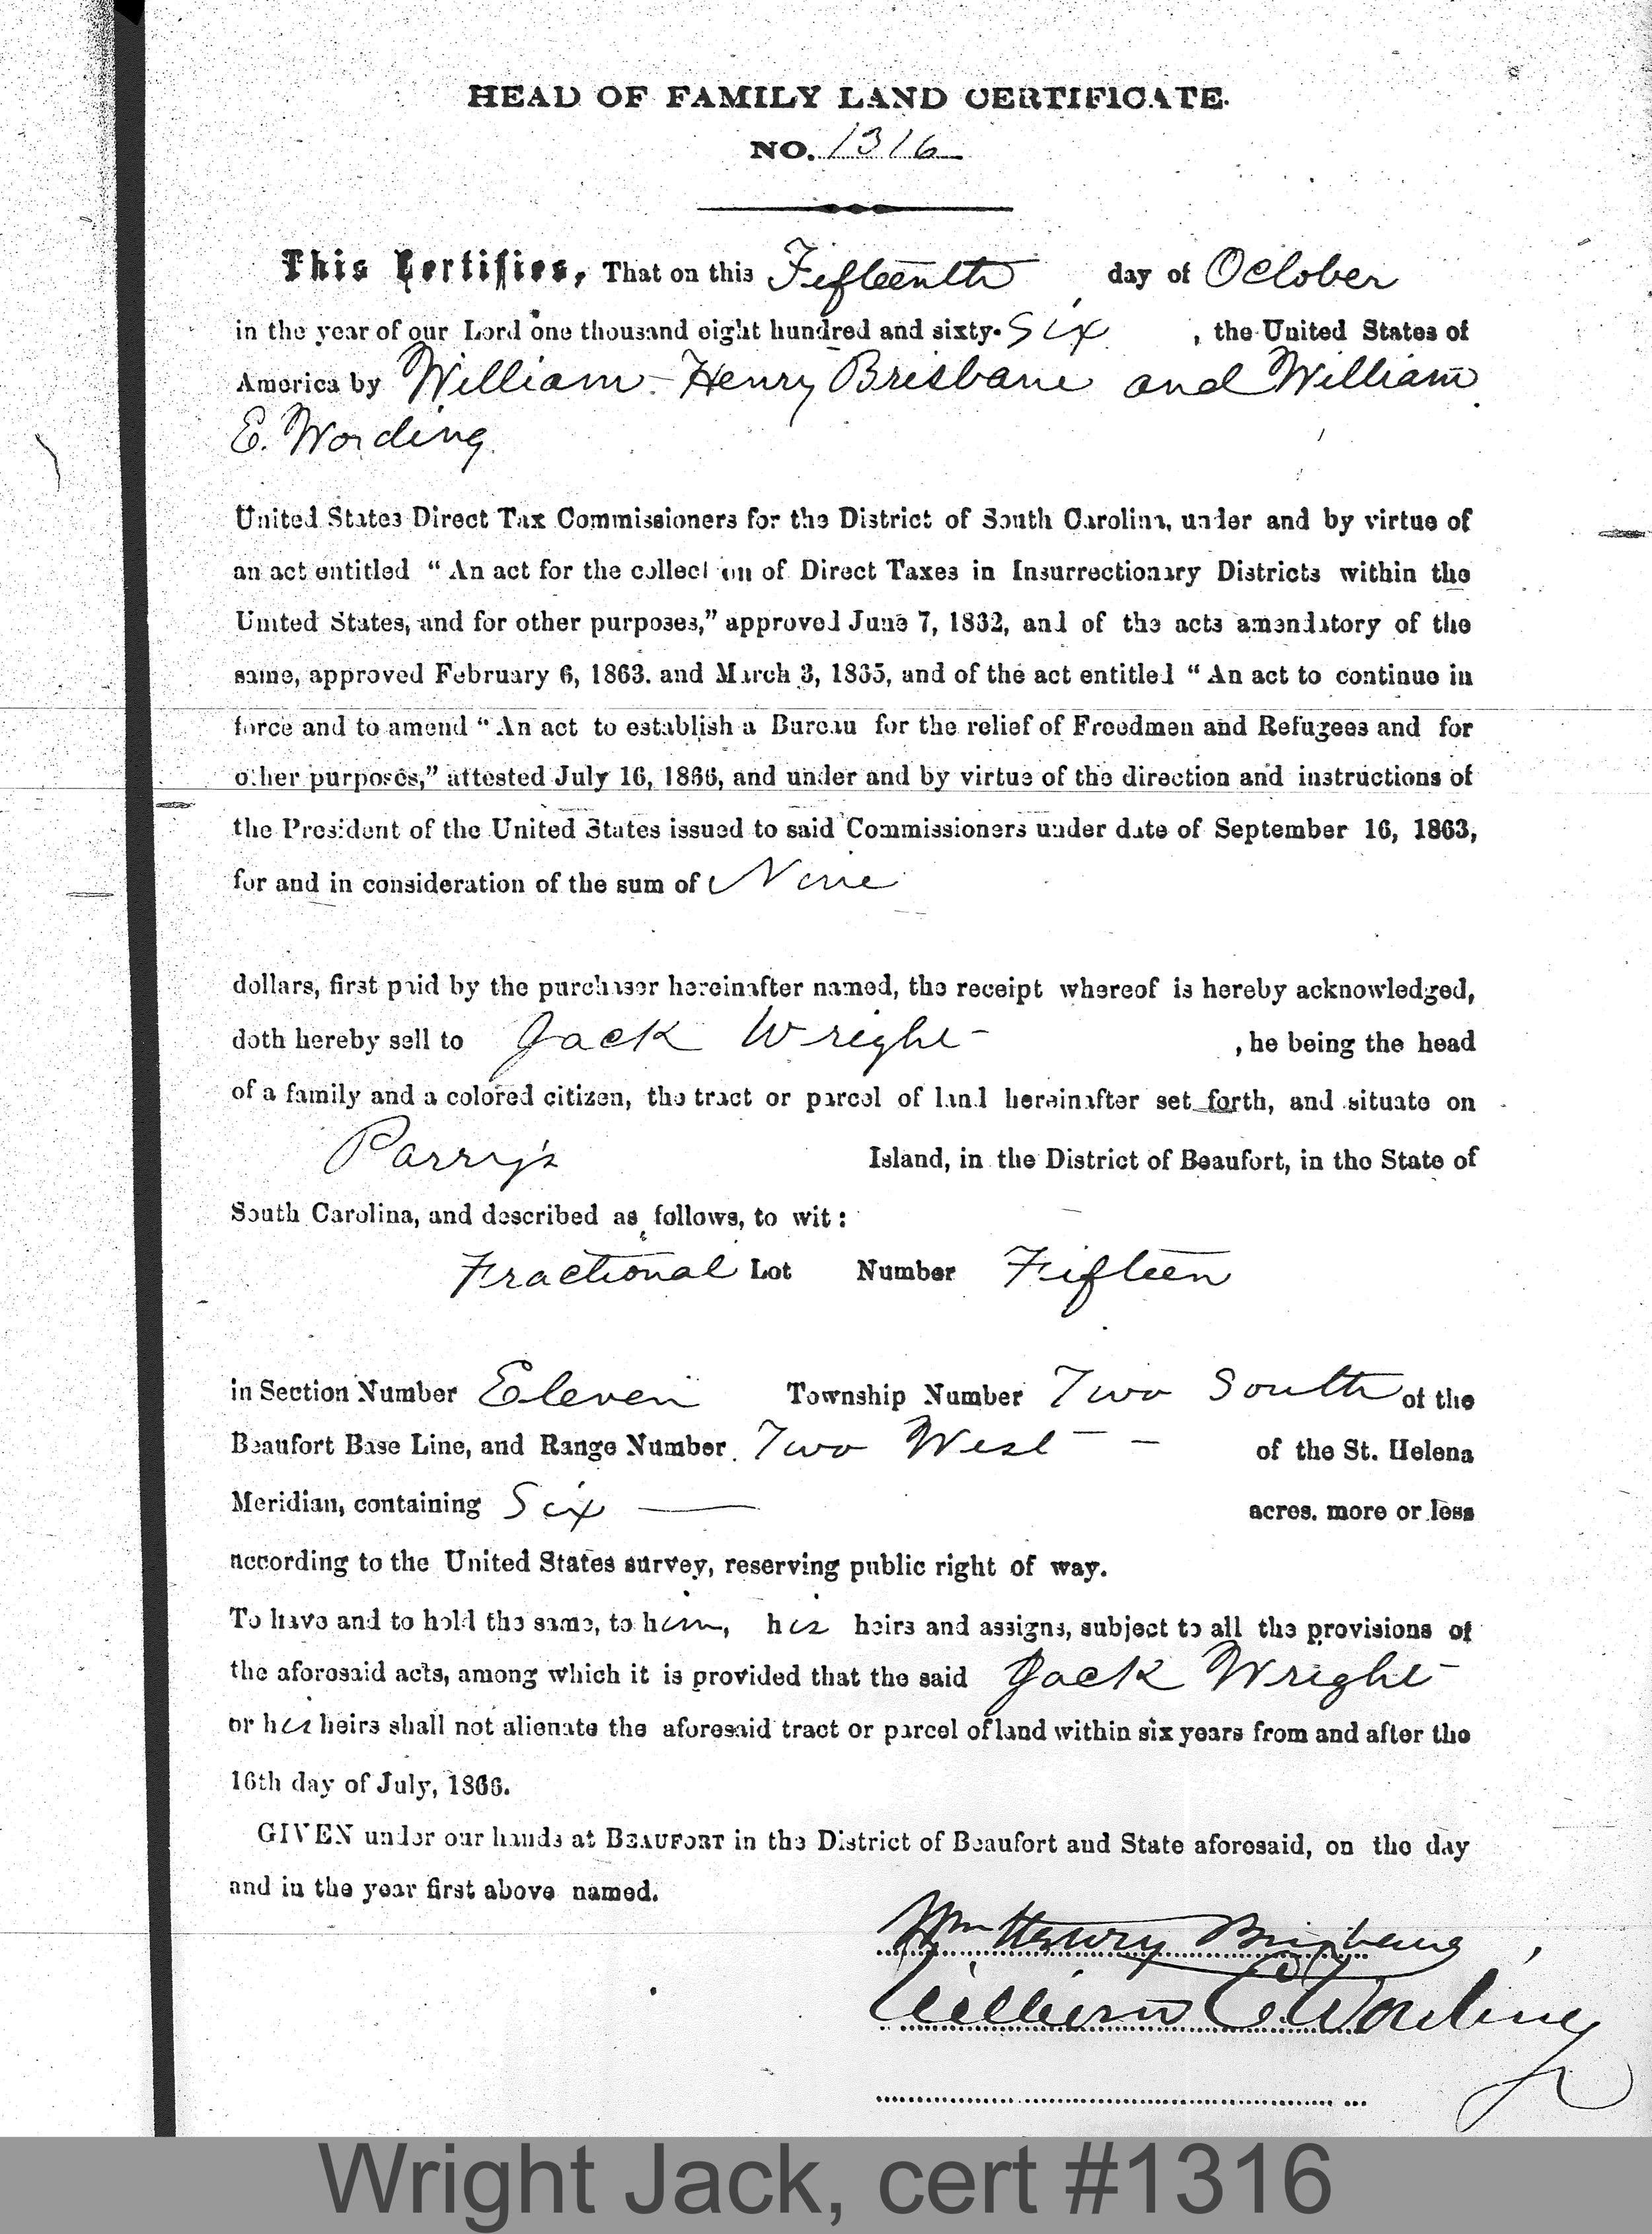 HEAD OF FAMILY LAND CERTIFICATE.
NO. 1316
This Certifies, That on this Fifteenth day of October
in the year of our Lord one thousand eight hundred and sixty-Six , the United States of
America by William Henry Brisbane and William
E. Wording
United States Direct Tax Commissioners for the District of South Carolina, under and by virtue of
an act entitled "An act for the collection of Direct Taxes in Insurrectionary Districts within the
United States, and for other purposes," approved June 7, 1832, and of the acts amendatory of the
same, approved February 6, 1863. and March 3, 1835, and of the act entitled "An act to continue in
force and to amend "An act to establish a Bureau for the relief of Freedmen and Refugees and for
other purposes," attested July 16, 1866, and under and by virtue of the direction and instructions of
the President of the United States issued to said Commissioners under date of September 16, 1863,
for and in consideration of the sum of Nine
dollars, first paid by the purchaser hereinafter named, the receipt whereof is hereby acknowledged,
doth hereby sell to Jack Wright , he being the head
of a family and a colored citizen, the tract or parcel of land hereinafter set forth, and situate on
Parry's Island, in the District of Beaufort, in the State of
South Carolina, and described as follows, to wit:
Fractional Lot Number Fifteen
in Section Number Eleven Township Number Two South of the
Beaufort Base Line, and Range Number Two West — — of the St. Helena
Meridian, containing Six — acres. more or less
according to the United States survey, reserving public right of way.
To have and to hold the same, to him, his heirs and assigns, subject to all the provisions of
the aforesaid acts, among which it is provided that the said Jack Wright
or his heirs shall not alienate the aforesaid tract or parcel of land within six years from and after the
16th day of July, 1866.
GIVEN under our hands at BEAUFORT in the District of Beaufort and State aforesaid, on the day
and in the year first above named.
Wm Henry Brisbane
William E. Wording
Wright Jack, cert #1316